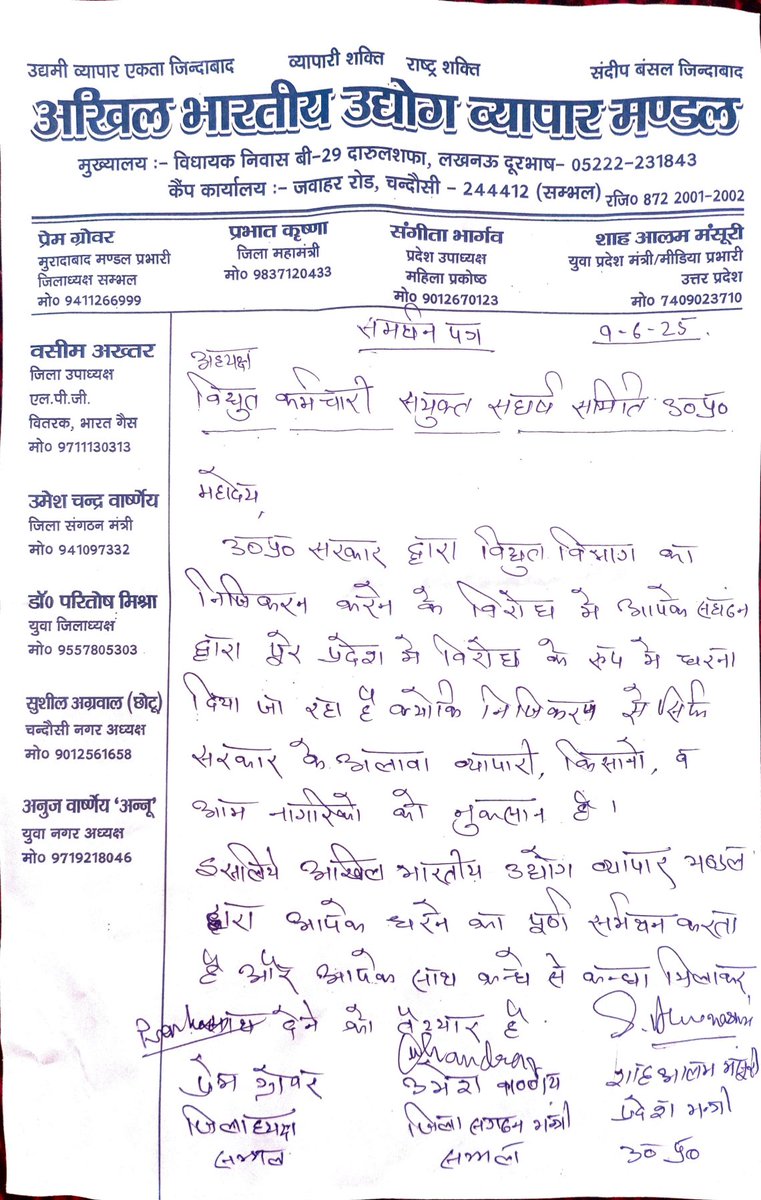 उद्यमी व्यापार एकता जिन्दाबाद व्यापारी शक्ति राष्ट्र शक्ति संदीप बंसल जिन्दाबाद
अखिल भारतीय उद्योग व्यापार मण्डल
मुख्यालय :- विधायक निवास बी-29 दारुलशफा, लखनऊ दूरभाष- 05222-231843
कैंप कार्यालय :- जवाहर रोड, चन्दौसी - 244412 (सम्भल) रजि० 872 2001-2002
प्रेम ग्रोवर
मुरादाबाद मण्डल प्रभारी
जिलाध्यक्ष सम्भल
मो० 9411266999
प्रभात कृष्णा
जिला महामंत्री
मो० 9837120433
संगीता भार्गव
प्रदेश उपाध्यक्ष
महिला प्रकोष्ठ
मो० 9012670123
शाह आलम मंसूरी
युवा प्रदेश मंत्री/मीडिया प्रभारी
उत्तर प्रदेश
मो० 7409023710
वसीम अख्तर
जिला उपाध्यक्ष
एल.पी.जी.
वितरक, भारत गैस
मो० 9711130313
उमेश चन्द्र वार्ष्णेय
जिला संगठन मंत्री
मो० 941097332
डॉ० परितोष मिश्रा
युवा जिलाध्यक्ष
मो० 9557805303
सुशील अग्रवाल (छोटू)
चन्दौसी नगर अध्यक्ष
मो० 9012561658
अनुज वार्ष्णेय 'अन्नू'
युवा नगर अध्यक्ष
मो० 9719218046
समर्थन पत्र 9-6-25.
अध्यक्ष
विद्युत कर्मचारी संयुक्त संघर्ष समिति उ०प्र०
महोदय,
उ०प्र० सरकार द्वारा विद्युत विभाग का
निजिकरन करने के विरोध मे आपके संघठन
द्वारा पूरे प्रदेश मे विरोध के रुप मे धरना
दिया जा रहा है क्योकि निजिकरण से सिर्फ
सरकार के अलावा व्यापारी, किसानो, व
आम नागरिको को नुकसान है।
इसलिये अखिल भारतीय उद्योग व्यापार मण्डल
द्वारा आपके धरने का पूर्ण समर्थन करता
है और आपके साथ कन्धे से कन्धा मिलाकर
देने को तैय्यार है
प्रेम ग्रोवर उमेश वार्ष्णेय शाह आलम मंसूरी
जिलाध्यक्ष जिला संगठन मंत्री प्रदेश मन्त्री
सम्भल सम्भल उ०प्र०